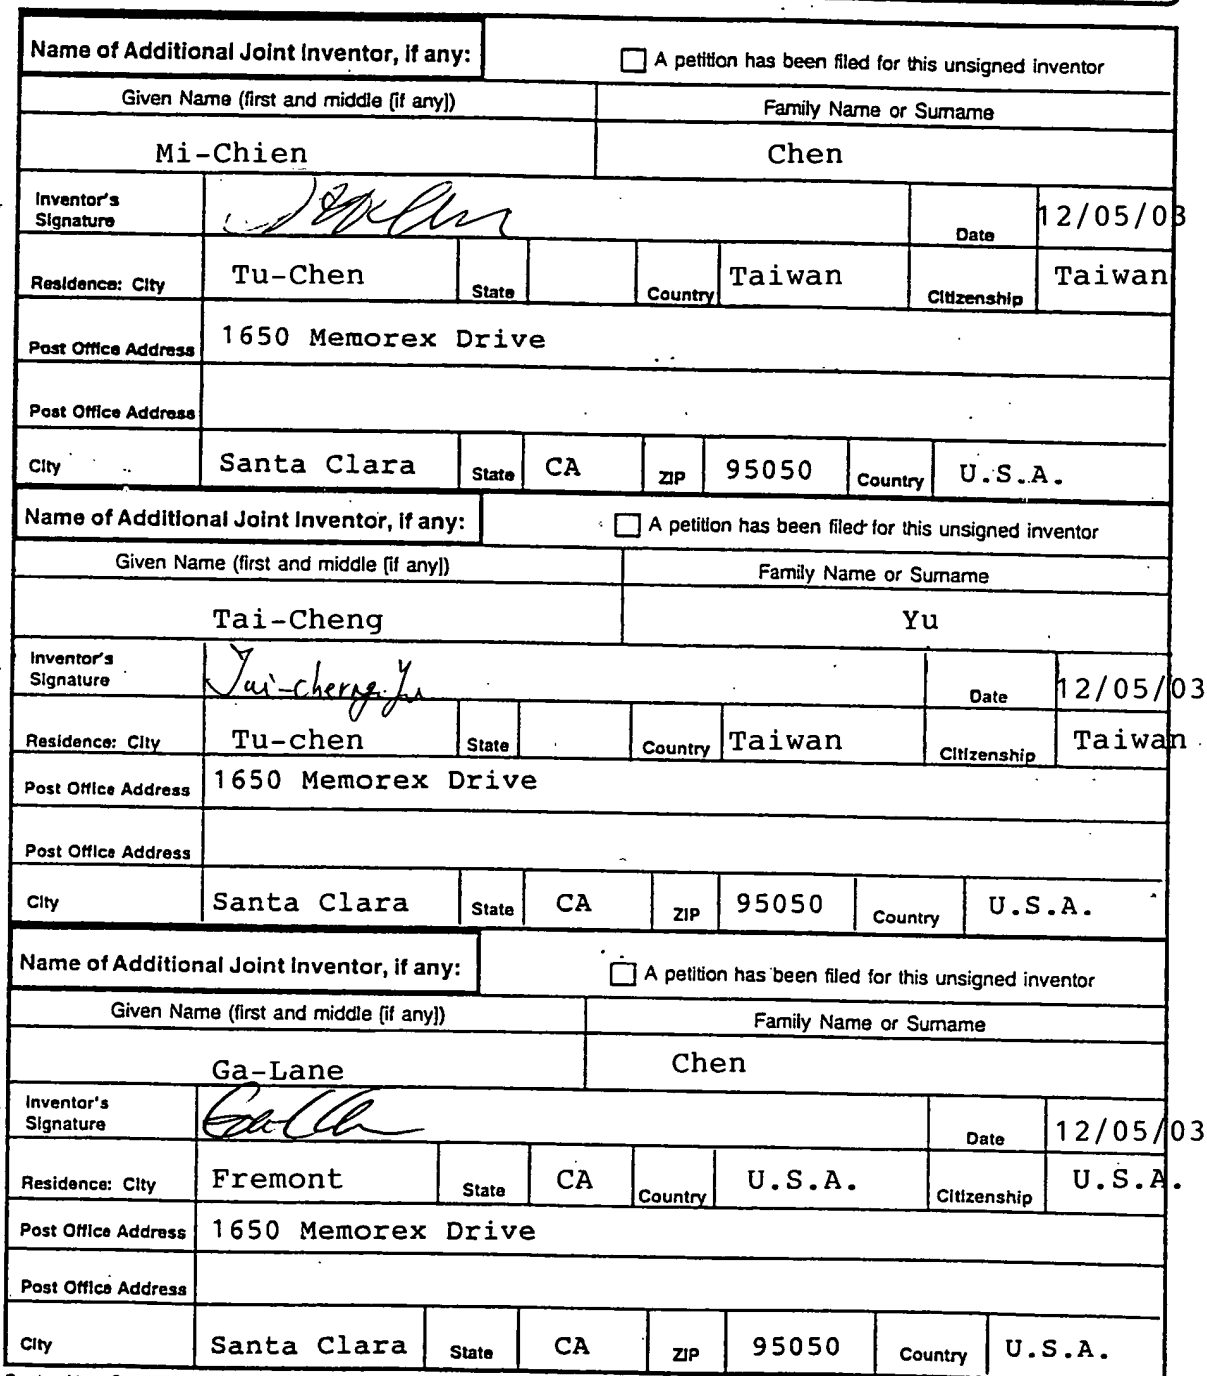 Name of Additional Joint Inventor, if any: A petition has been filed for this unsigned inventor
Given Name (first and middle [if any]) Family Name or Surname
Mi-Chien Chen
Inventor's Signature Date 12/05/03
Residence: City Tu-Chen State Country Taiwan Citizenship Taiwan
Post Office Address 1650 Memorex Drive
Post Office Address
City Santa Clara State CA ZIP 95050 Country U.S.A.
Name of Additional Joint Inventor, if any: A petition has been filed for this unsigned inventor
Given Name (first and middle [if any]) Family Name or Surname
Tai-Cheng Yu
Inventor's Signature Tai-cherng Yu Date 12/05/03
Residence: City Tu-chen State Country Taiwan Citizenship Taiwan
Post Office Address 1650 Memorex Drive
Post Office Address
City Santa Clara State CA ZIP 95050 Country U.S.A.
Name of Additional Joint Inventor, if any: A petition has been filed for this unsigned inventor
Given Name (first and middle [if any]) Family Name or Surname
Ga-Lane Chen
Inventor's Signature Date 12/05/03
Residence: City Fremont State CA Country U.S.A. Citizenship U.S.A.
Post Office Address 1650 Memorex Drive
Post Office Address
City Santa Clara State CA ZIP 95050 Country U.S.A.